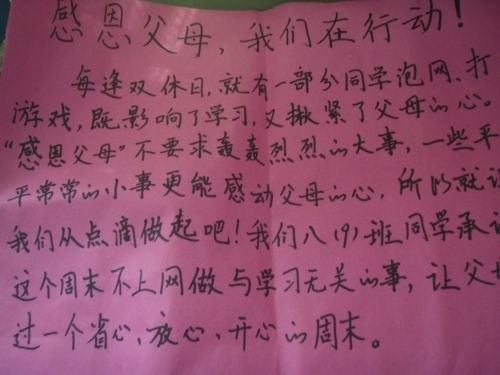 感恩父母,我们在行动!
每逢双休日,就有一部分同学泡网、打
游戏,既影响了学习,又揪紧了父母的心。
“感恩父母”不要求轰轰烈烈的大事,一些平
平常常的小事更能感动父母的心,所以就让
我们从点滴做起吧!我们八(9)班同学承
这个周末不上网做与学习无关的事,让父母
过一个省心、放心、开心的周末。